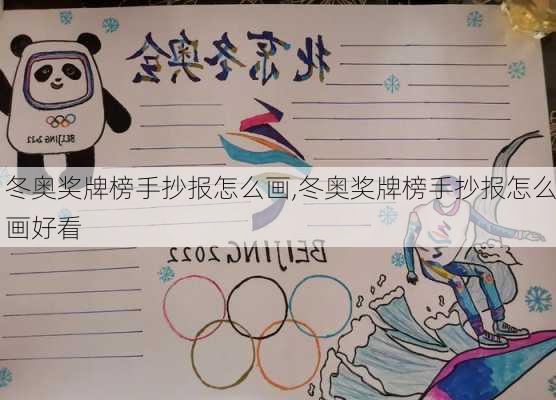 北京冬奥会
BEIJING 2022
冬奥奖牌榜手抄报怎么画,冬奥奖牌榜手抄报怎么
画好看
BEIJING 2022